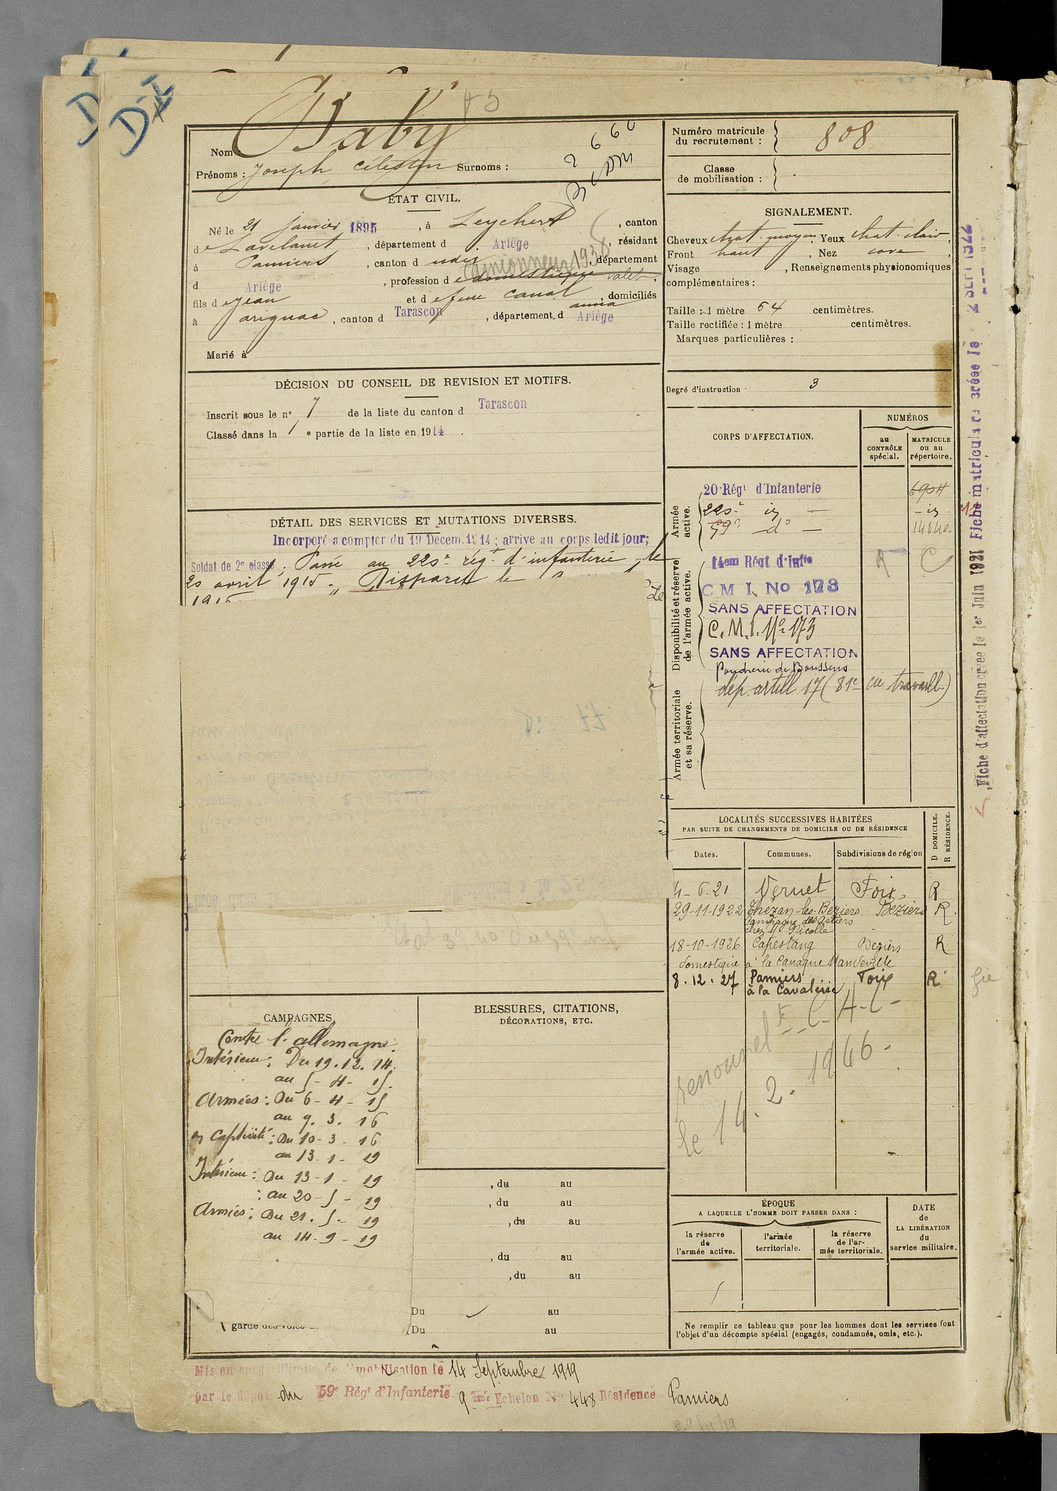 D-I
Baby
Nom
Prénoms : Joseph Célestin Surnoms :
ÉTAT CIVIL.
Né le 21 Janvier 1895, à Leychert, canton
de Lavelanet, département d Ariège, résidant
à Pamiers, canton d udit, département
d Ariège, profession de domestique valet
fils de Jean et de feue Canal Anna, domiciliés
à Arignac, canton d Tarascon, département d Ariège
Marié à
DÉCISION DU CONSEIL DE REVISION ET MOTIFS.
Inscrit sous le n° 7 de la liste du canton d Tarascon
Classé dans la 1e partie de la liste en 1914.
DÉTAIL DES SERVICES ET MUTATIONS DIVERSES.
Incorporé à compter du 19 Décem. 1914 ; arrivé au corps ledit jour;
Soldat de 2e classe. Passé au 220e régt d'infanterie, le
20 avril 1915. Disparu le
1915
CAMPAGNES.
Contre l'allemagne.
Intérieur : Du 19.12.14.
au 5-4-15.
Armées : Du 6-4-15
au 9.3.16
en Captivité : Du 10-3-16
au 13-1-19
Intérieur : Du 13-1-19
: au 20-5-19
Armées : Du 21.5-19
au 14-9-19
BLESSURES, CITATIONS,
DÉCORATIONS, ETC.
, du au
, du au
, du au
, du au
, du au
Du au
Du au
Mis en congé illimité de démobilisation le 14 Septembre 1919
par le dépôt du 59e Régt d'Infanterie 9 ème Echelon No 448 Résidence Pamiers
Numéro matricule
du recrutement : 808
Classe
de mobilisation :
SIGNALEMENT.
Cheveux chat. moyen, Yeux chat. clair,
Front haut, Nez cave
Visage , Renseignements physionomiques
complémentaires :
Taille : 1 mètre 64 centimètres.
Taille rectifiée : 1 mètre centimètres.
Marques particulières :
Degré d'instruction 3
CORPS D'AFFECTATION.
NUMÉROS
au
CONTRÔLE
spécial.
MATRICULE
ou au
répertoire.
Armée
active.
20 Régt d'Infanterie 6904
220e id
59e do
Disponibilité et réserve
de l'armée active.
14em Régt d'Infie
C M I, No 173
SANS AFFECTATION
C.M.I. No 173
SANS AFFECTATION
Poudrerie de Boussens
dép artill 17 (81e cie travaill)
Armée territoriale
et sa réserve.
Fiche d'affectation créée le 1er Juin 1921 Fiche matricule créée le 2 SEPT 1922
LOCALITÉS SUCCESSIVES HABITÉES
PAR SUITE DE CHANGEMENTS DE DOMICILE OU DE RÉSIDENCE
Dates. Communes. Subdivisions de région
D DOMICILE.
R RÉSIDENCE.
4-6.21 Vernet Foix R
29-11-1922 Thézan-les-Béziers Béziers R.
chez Mr Nicolle
18-10-1926 Capestang Béziers R
domestique à la Canague Mandeville
8.12.27 Pamiers Foix R
à la Cavalerie
renouvel
le 14.2.1946-
ÉPOQUE
A LAQUELLE L'HOMME DOIT PASSER DANS :
la réserve
de
l'armée active.
l'armée
territoriale.
la réserve
de l'ar-
mée territoriale.
DATE
de
LA LIBÉRATION
du
service militaire.
Ne remplir ce tableau que pour les hommes dont les services font
l'objet d'un décompte spécial (engagés, condamnés, omis, etc.).